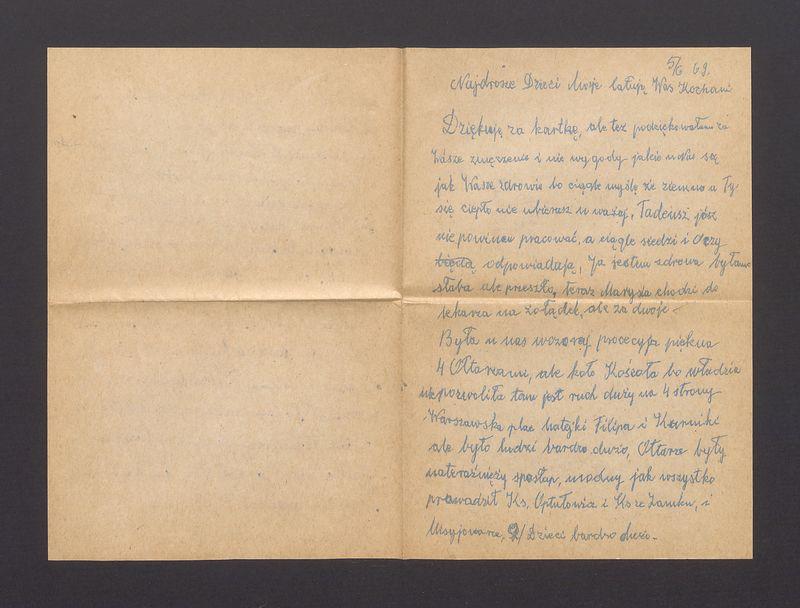 5/6 69.
Najdrosze Dzieci Moje całuję Was Kochani
Dziękuję za kartkę, ale też podziękowałam za
Wasze zmęczenie i nie wygody jakie u Was są
jak Wasze zdrowie bo ciągle myślę że ziemno a Ty
się ciepło nie ubierasz uważaj, Tadeusz jósz
nie powinien pracować, a ciągle siedzi i Oczy
odpowiadają, Ja jestem zdrowa byłam
słaba ale przeszło, teraz Marysia chodzi do
lekarza na żołądek, ale za dwoje –
Była u nas wczoraj procecyja piękna
4 Ołtarzami, ale koło Kościoła bo władzia
nie pozwoliła tam jest ruch duży na 4 strony
Warszawska plac Matejki Filipa i Kurniki
ale było ludzi bardzo dużo, Ołtarze były
na teraźnieży spostap, modny jak wszystko
prowadził Ks. i Ks ze Zamku, i
Misyjonarze, Dzieci bardzo dużo.